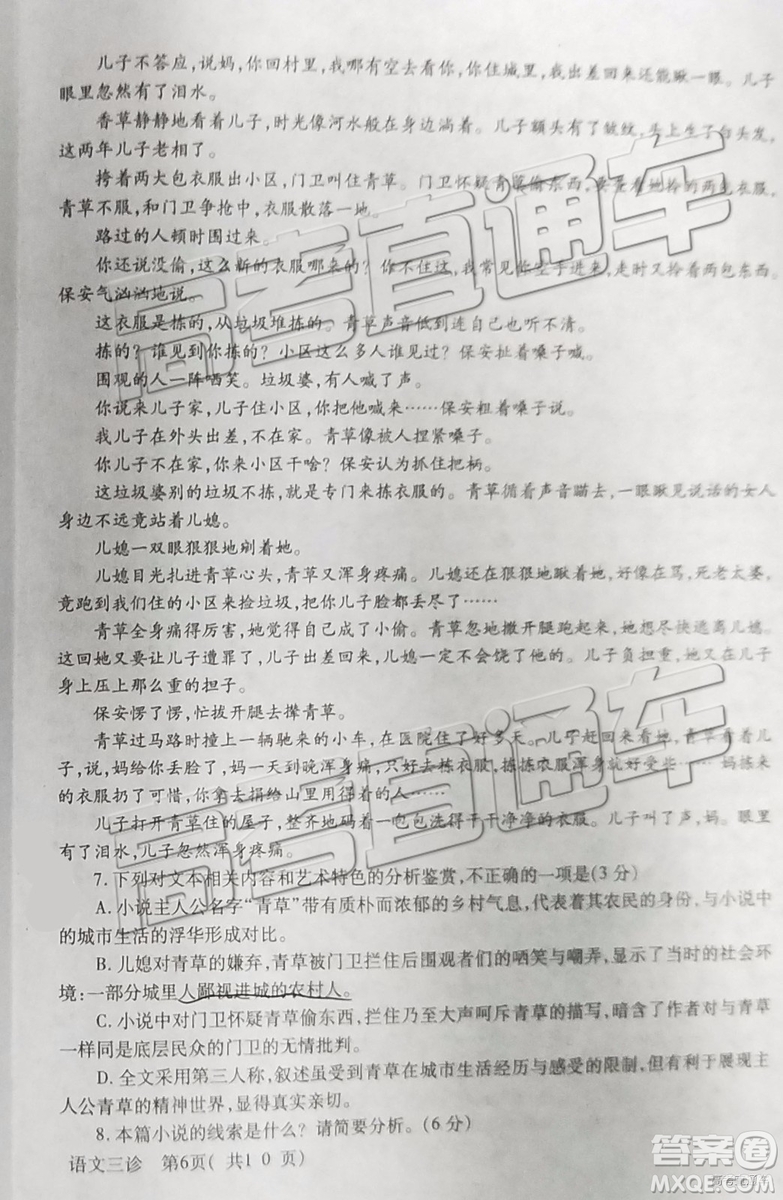 儿子不答应,说妈,你回村里,我哪有空去看你,你住城里,我出差回来还能瞅一眼。儿子
眼里忽然有了泪水。
香草静静地看着儿子,时光像河水般在身边淌着。儿子额头有了皱纹,头上生了白头发,
这两年儿子老相了。
挎着两大包衣服出小区,门卫叫住青草。门卫怀疑青草偷东西,要查看她拎的两包衣服,
青草不服,和门卫争抢中,衣服散落一地。
路过的人顿时围过来。
你还说没偷,这么新的衣服哪来的?你不住这,我常见你空手进来,走时又拎着两包东西。
保安气汹汹地说。
这衣服是拣的,从垃圾堆拣的。青草声音低到连自己也听不清。
拣的?谁见到你拣的?小区这么多人谁见过?保安扯着嗓子喊。
围观的人一阵哂笑。垃圾婆,有人喊了声。
你说来儿子家,儿子住小区,你把他喊来……保安粗着嗓子说。
我儿子在外头出差,不在家。青草像被人捏紧嗓子。
你儿子不在家,来小区干啥?保安认为抓住把柄。
这垃圾婆别的垃圾不拣,就是专门来拣衣服的。青草循着声音瞄去,一眼瞅见说话的女人
身边不远竟站着儿媳。
儿媳一双眼狠狠地剜着她。
儿媳目光扎进青草心头,青草又浑身疼痛。儿媳还在狠狠地瞅着她,好像在骂,死老太婆,
竟跑到我们住的小区来捡垃圾,把你儿子脸都丢尽了……
青草全身痛得厉害,她觉得自己成了小偷。青草忽地撒开腿跑起来,她想尽快逃离儿媳。
这回她又要让儿子遭罪了,儿子出差回来,儿媳一定不会饶了他的。儿子负担重,她又在儿子
身上压上那么重的担子。
保安愣了愣,忙拔开腿去撵青草。
青草过马路时撞上一辆驰来的小车,在医院住了好多天。儿子赶回来看她,青草拉着儿子
说,妈给你丢脸了,妈一天到晚浑身疼,只能起来拣衣服,拣拣衣服浑身就好受些……妈拣来
的衣服扔了可惜,你拿去捐给山里用得着的人……
儿子打开青草住的屋子,整齐地码着一包包洗得干干净净的衣服。儿子叫了声,妈。眼里
有了泪水,儿子忽然浑身疼痛。
7.下列对文本相关内容和艺术特色的分析鉴赏,不正确的一项是(3分)
A.小说主人公名字“青草”带有质朴而浓郁的乡村气息,代表着其农民的身份,与小说中
的城市生活的浮华形成对比。
B.儿媳对青草的嫌弃,青草被门卫拦住后围观者们的哂笑与嘲弄,暗示了当时的社会环
境:一部分城里人鄙视进城的农村人。
C.小说中对门卫怀疑青草偷东西,拦住乃至大声呵斥青草的描写,暗含了作者对与青草
一样同是底层民众的门卫的无情批判。
D.全文采用第三人称,叙述虽受到青草在城市生活经历与感受的限制,但有利于展现主
人公青草的精神世界,显得真实亲切。
8.本篇小说的线索是什么?请简要分析。(6分)
语文三诊 第6页(共10页)
高考直通车
高考直通车
答案圈
MXQE.COM